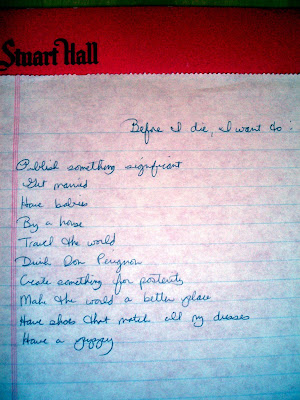 Stuart Hall
Before I die, I want to:
Publish something significant
Get married
Have babies
By a house
Travel the world
Drink Don Perignon
Create something for posterity
Make the world a better place
Have shoes that match all my dresses
Have a